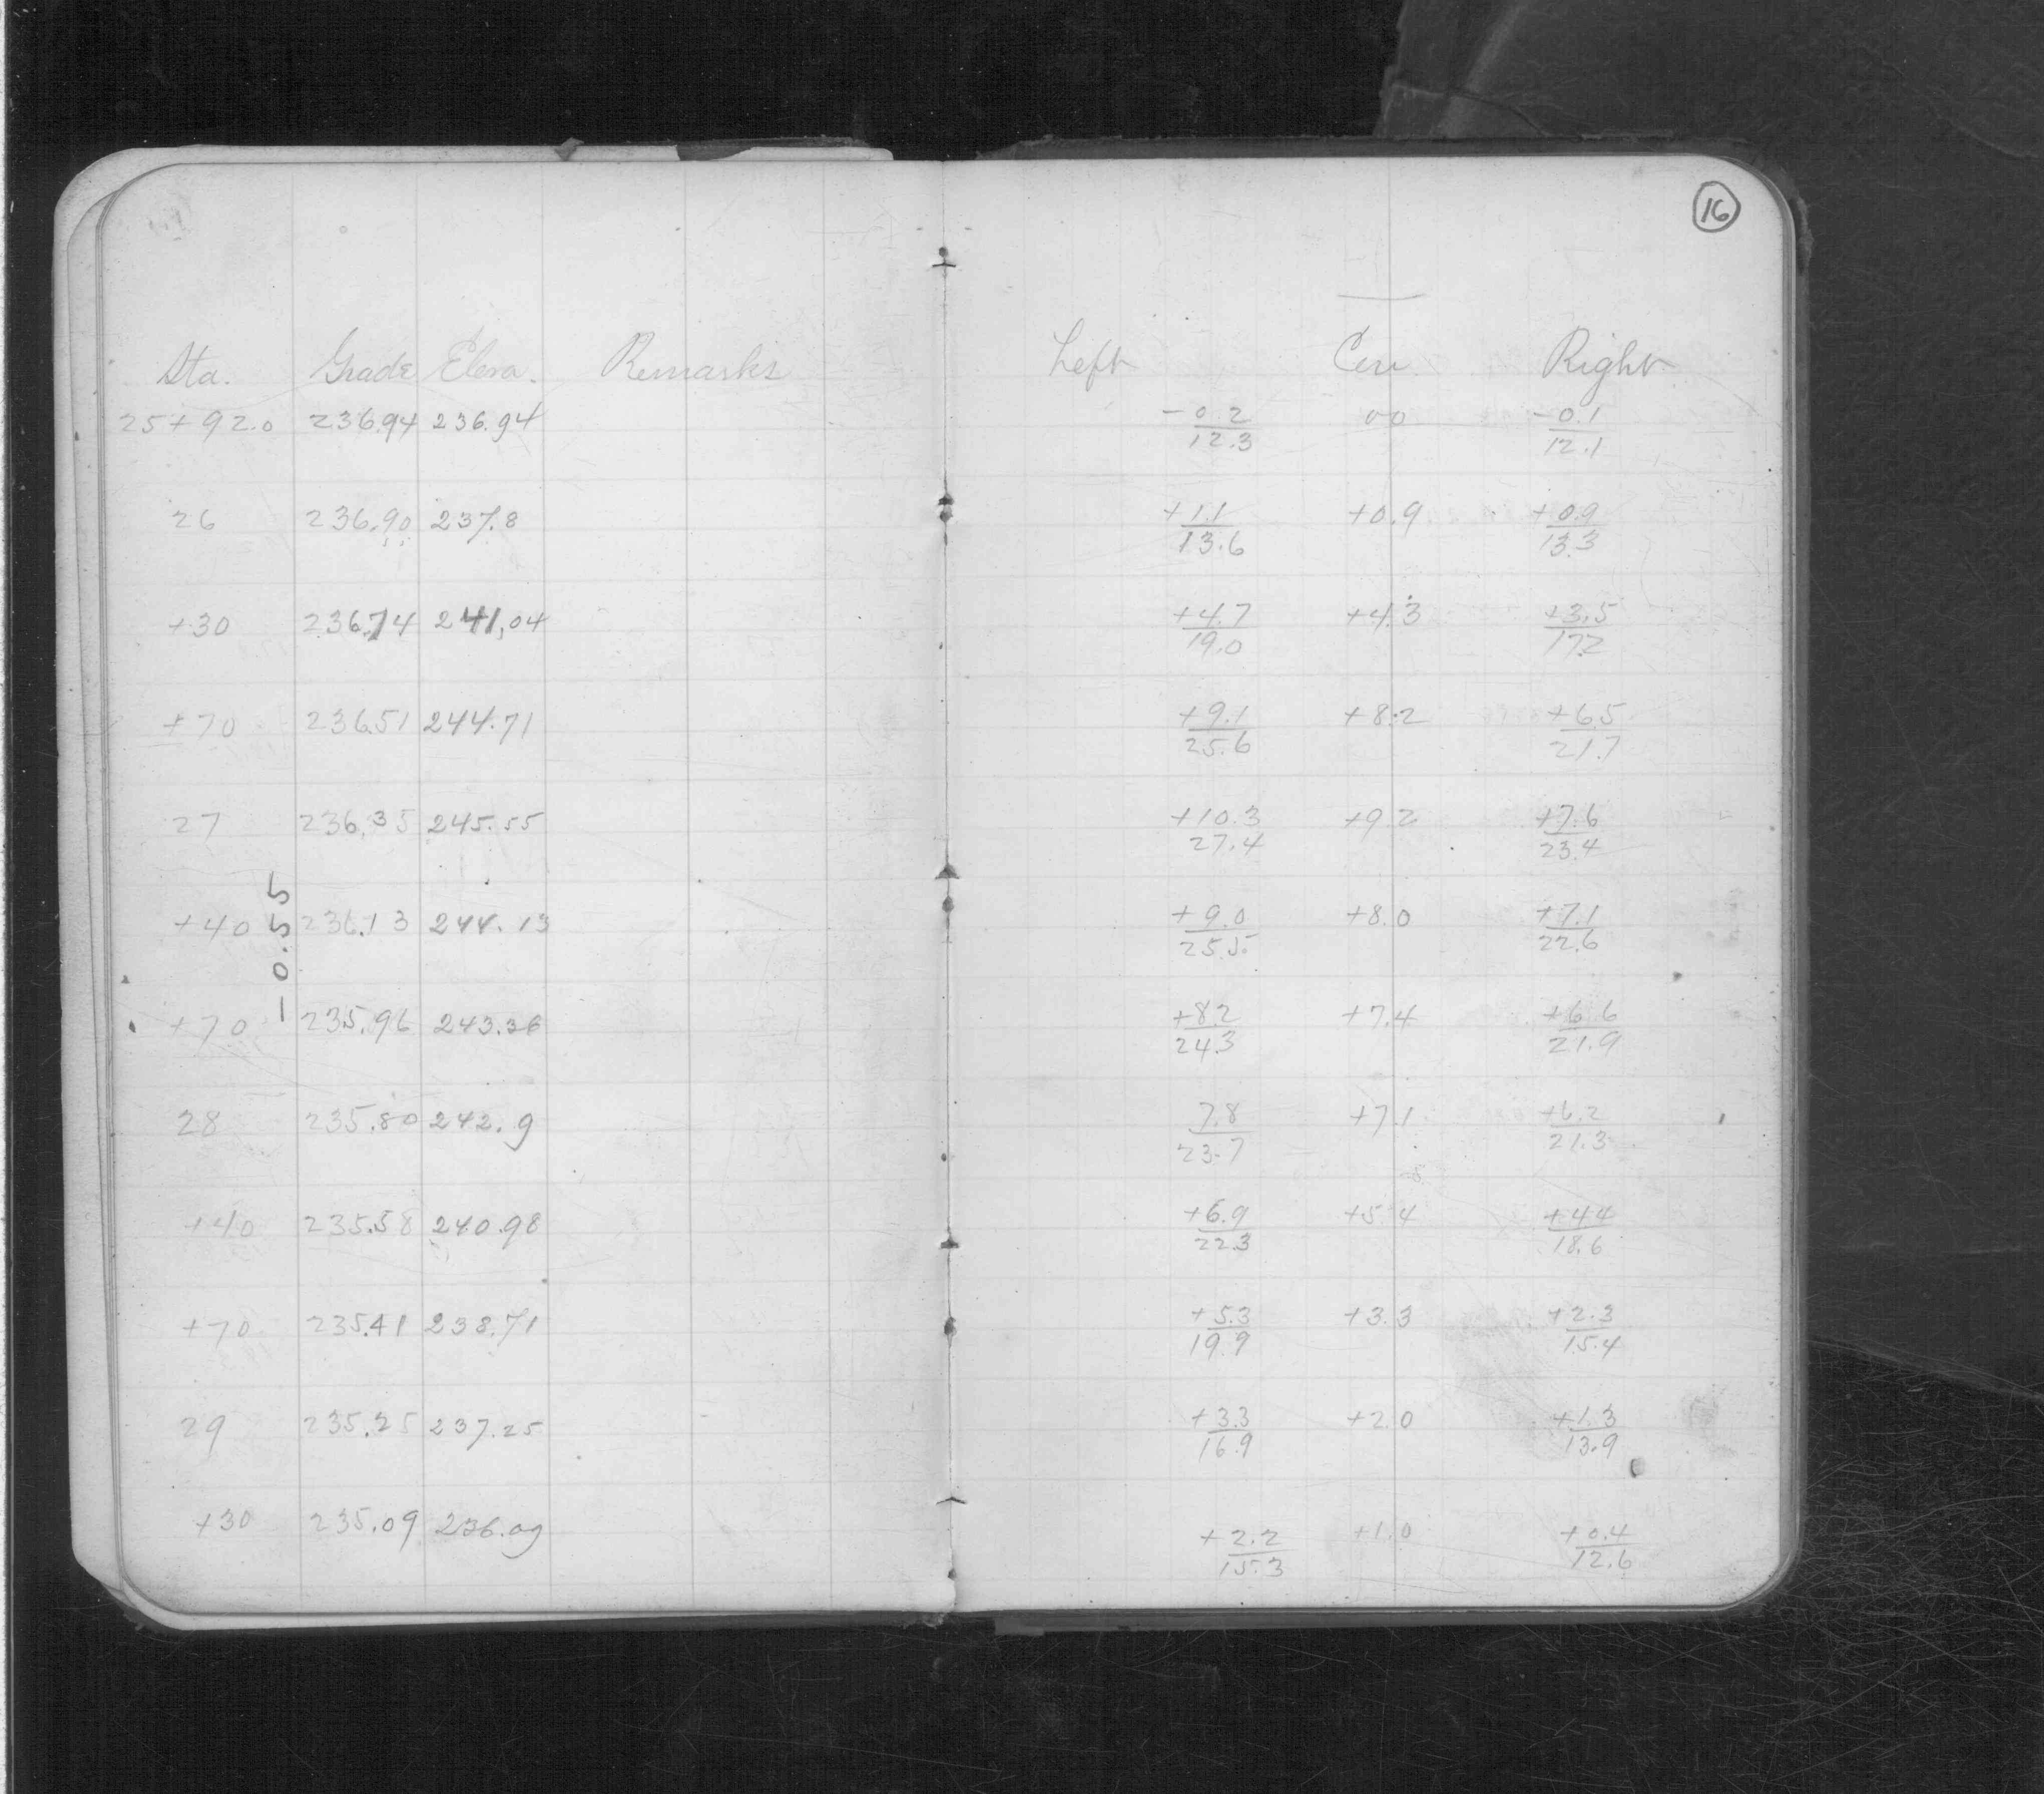 16
Sta. Grade Eleva. Remarks Left Cen. Right
25+92.0 236.94 236.94 -0.2/12.3 00 -0.1/12.1
26 236.90 237.8 +1.1/13.6 +0.9 +0.9/13.3
+30 236.74 241.04 +4.7/19.0 +4.3 +3.5/17.2
+70 236.51 244.71 +9.1/25.6 +8.2 +6.5/21.7
27 236.35 245.55 +10.3/27.4 +9.2 +7.6/23.4
-0.55
+40 236.13 244.13 +9.0/25.5 +8.0 +7.1/22.6
+70 235.96 243.36 +8.2/24.3 +7.4 +6.6/21.9
28 235.80 242.9 7.8/23.7 +7.1 +6.2/21.3
+40 235.58 240.98 +6.9/22.3 +5.4 +4.4/18.6
+70 235.41 238.71 +5.3/19.9 +3.3 +2.3/15.4
29 235.25 237.25 +3.3/16.9 +2.0 +1.3/13.9
+30 235.09 236.09 +2.2/15.3 +1.0 +0.4/12.6